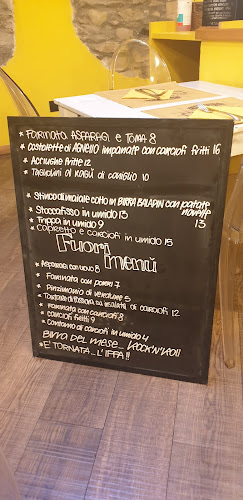 * Farinata ASPARAGI e TOMA 8
* Costolette di AGNELLO impanate con carciofi fritti 16
* Acciughe fritte 12
* Tagliolini al ragù di coniglio 10
* Stinco di maiale cotto in BIRRA BALADIN con patate novelle 13
* Stoccafisso in umido 13
* Trippa in umido 9
* Capretto e carciofi in umido 15
Fuori menù
* Asparagi con uovo 8
* Farinata con porri 7
* Pinzimonio di verdure 5
* Tartare di su insalata di carciofi 12
* Farinata con carciofi 8
* carciofi fritti 9
* Contorno di carciofi in umido 4
Birra del mese... Rock'n'Roll
* E' TORNATA... L'IPPA!!